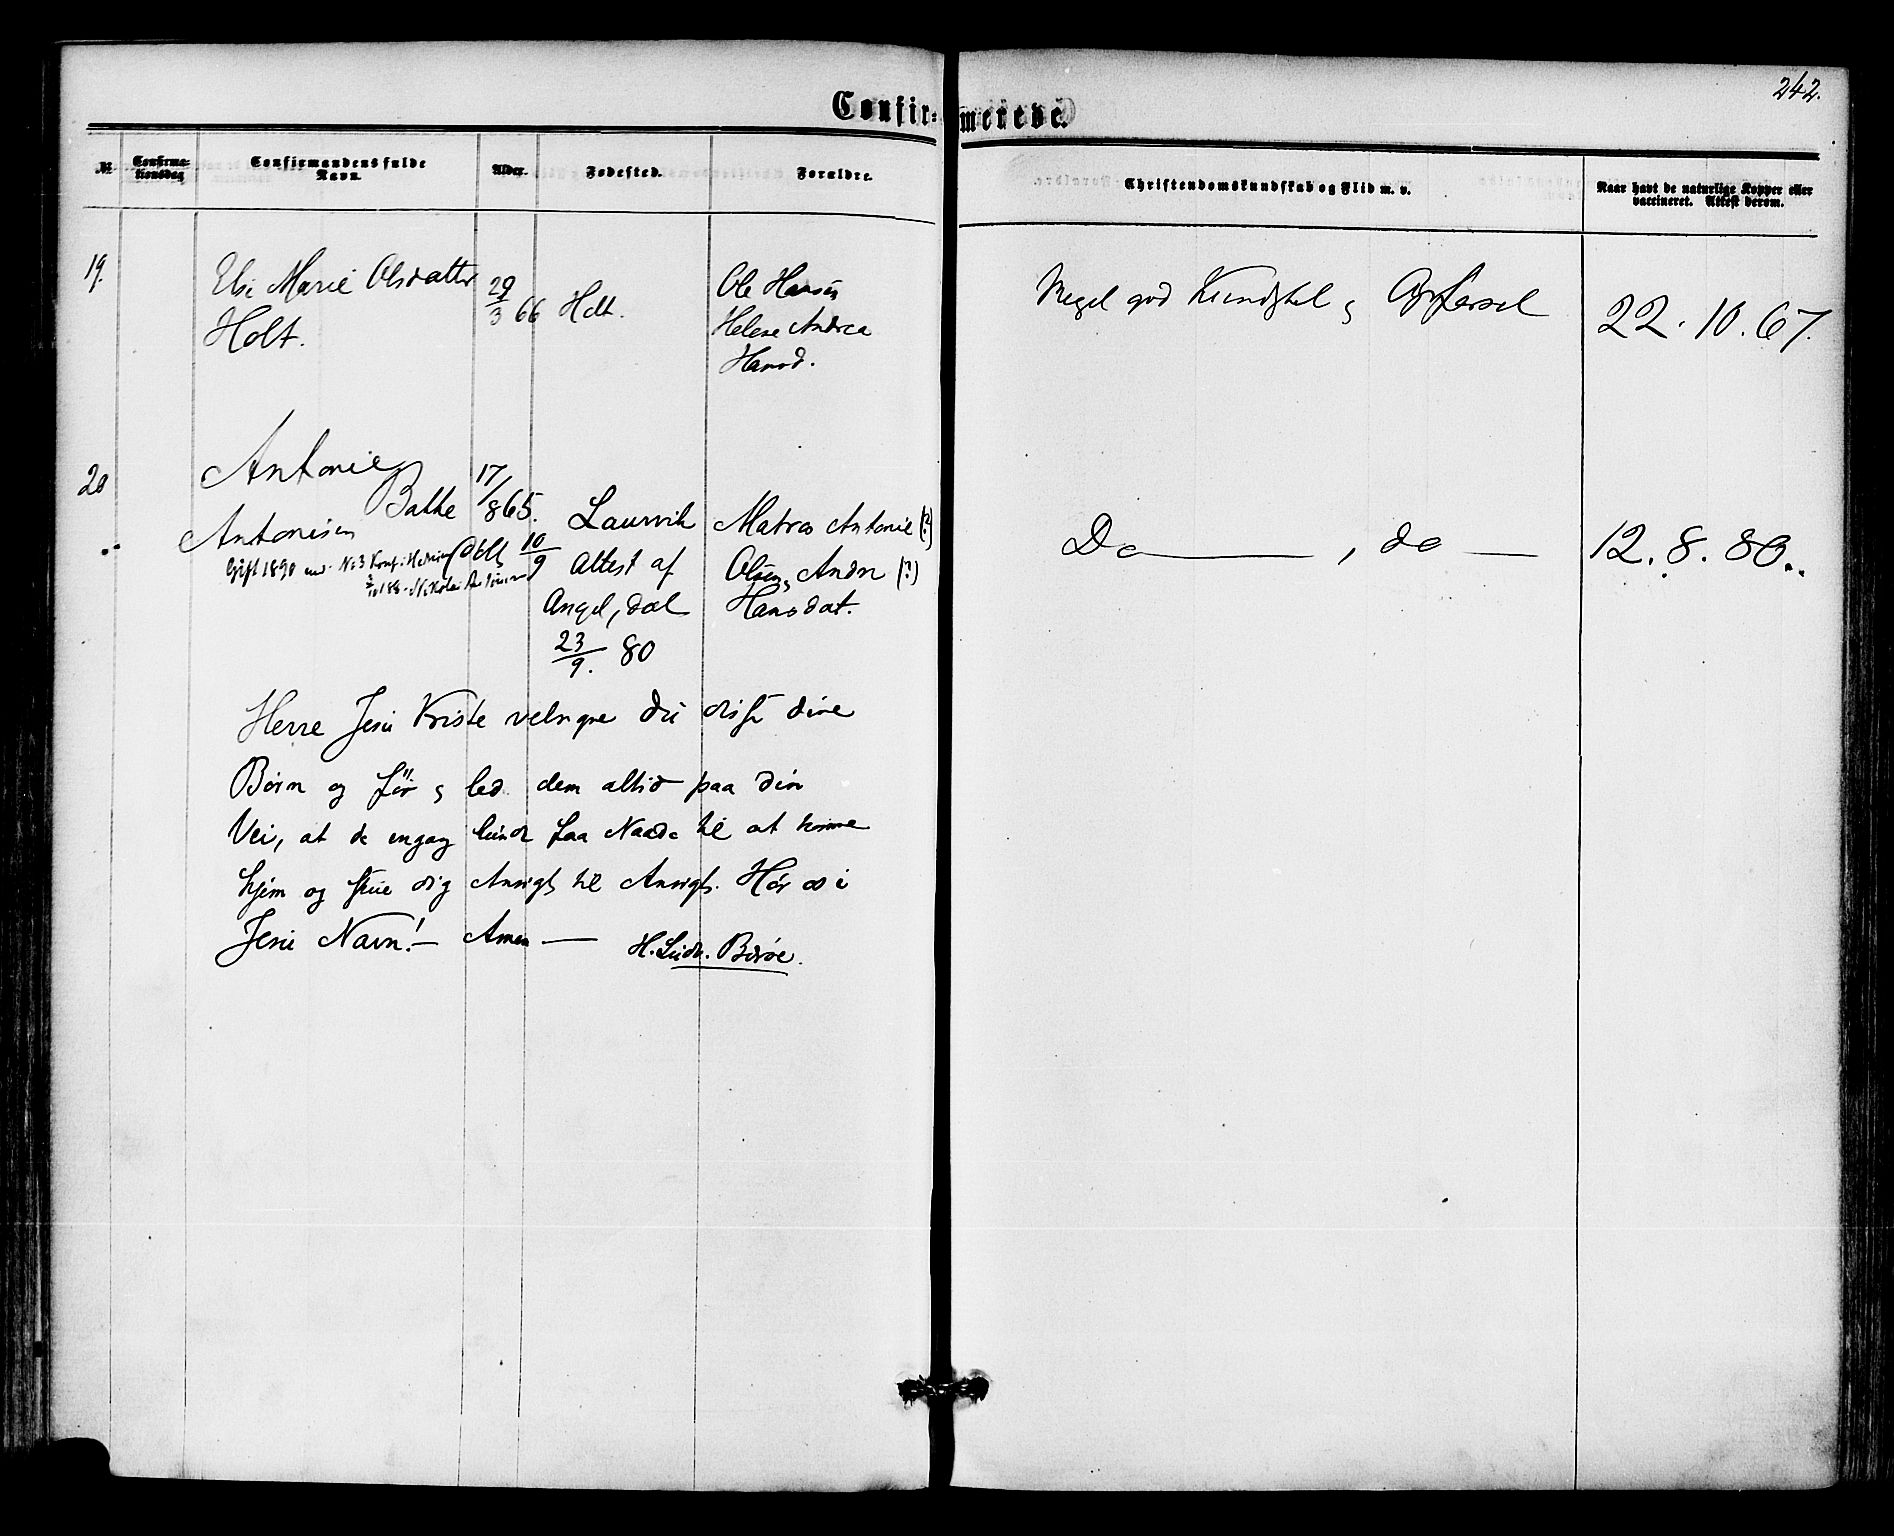 242.
Confirmerede.
№
Confirmationsdag
Confirmandens fulde Navn.
Alder.
Fødested.
Forældre.
Christendomskundskab og Flid m. v.
Naar havt de naturlige Kopper eller vaccineret. Attest derom.
19.
Else Marie Olsdatter
Holt.
29/3 66
Holt.
Ole Hansen
Helene Andrea
Hansd.
Meget god Kundskab og Opførsel
22. 10. 67.
20
Antonie
Bakke
Antonisen
Gift 1890 med No 3 Konf.
17/8 65.
Døbt 10/9
Laurvik
Attest af
23/9. 80
Matros Antonie (?)
Olsen, Andr (?)
Hansdat.
Do — , do —
12. 8. 80.
Herre Jesu Kriste velsigne du disse dine
Børn og før og led dem altid paa din
Vei, at de engang kunde faa Naade til at komme
hjem og skue dig Ansigt til Ansigt. Hør os i
Jesu Navn! — Amen —